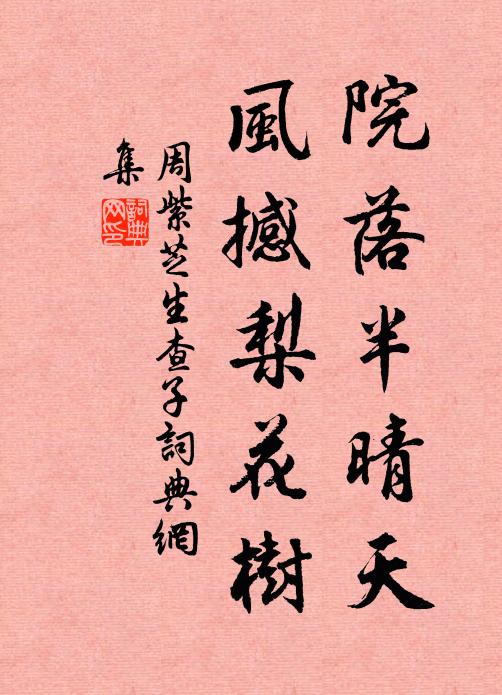 院落半晴天
風撼梨花樹
周紫芝生查子詞典網
集
詞典網印